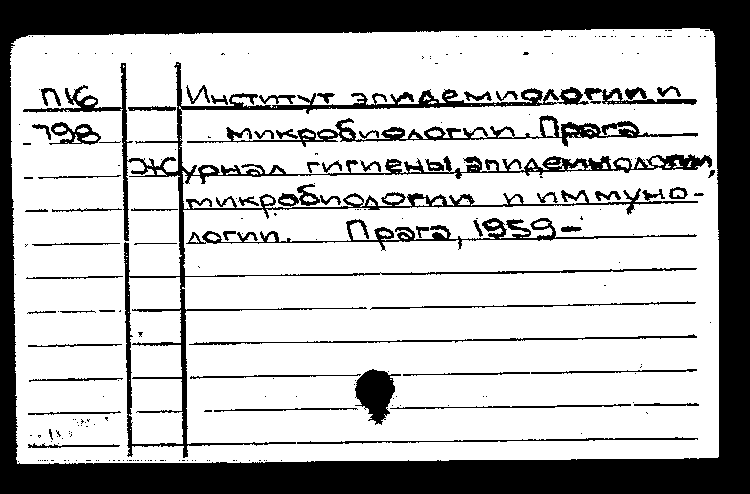 П16 Институт эпидемиологии и
798 микробиологии. Прага.
Журнал гигиены, эпидемиологии,
микробиологии и иммуно-
логии. Прага, 1959-